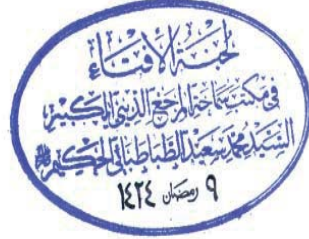 لجنة الافتاء
في مكتب سماحة المرجع الديني الكبير
السيد محمد سعيد الطباطبائي الحكيم
٩ رمضان ١٤٢٤